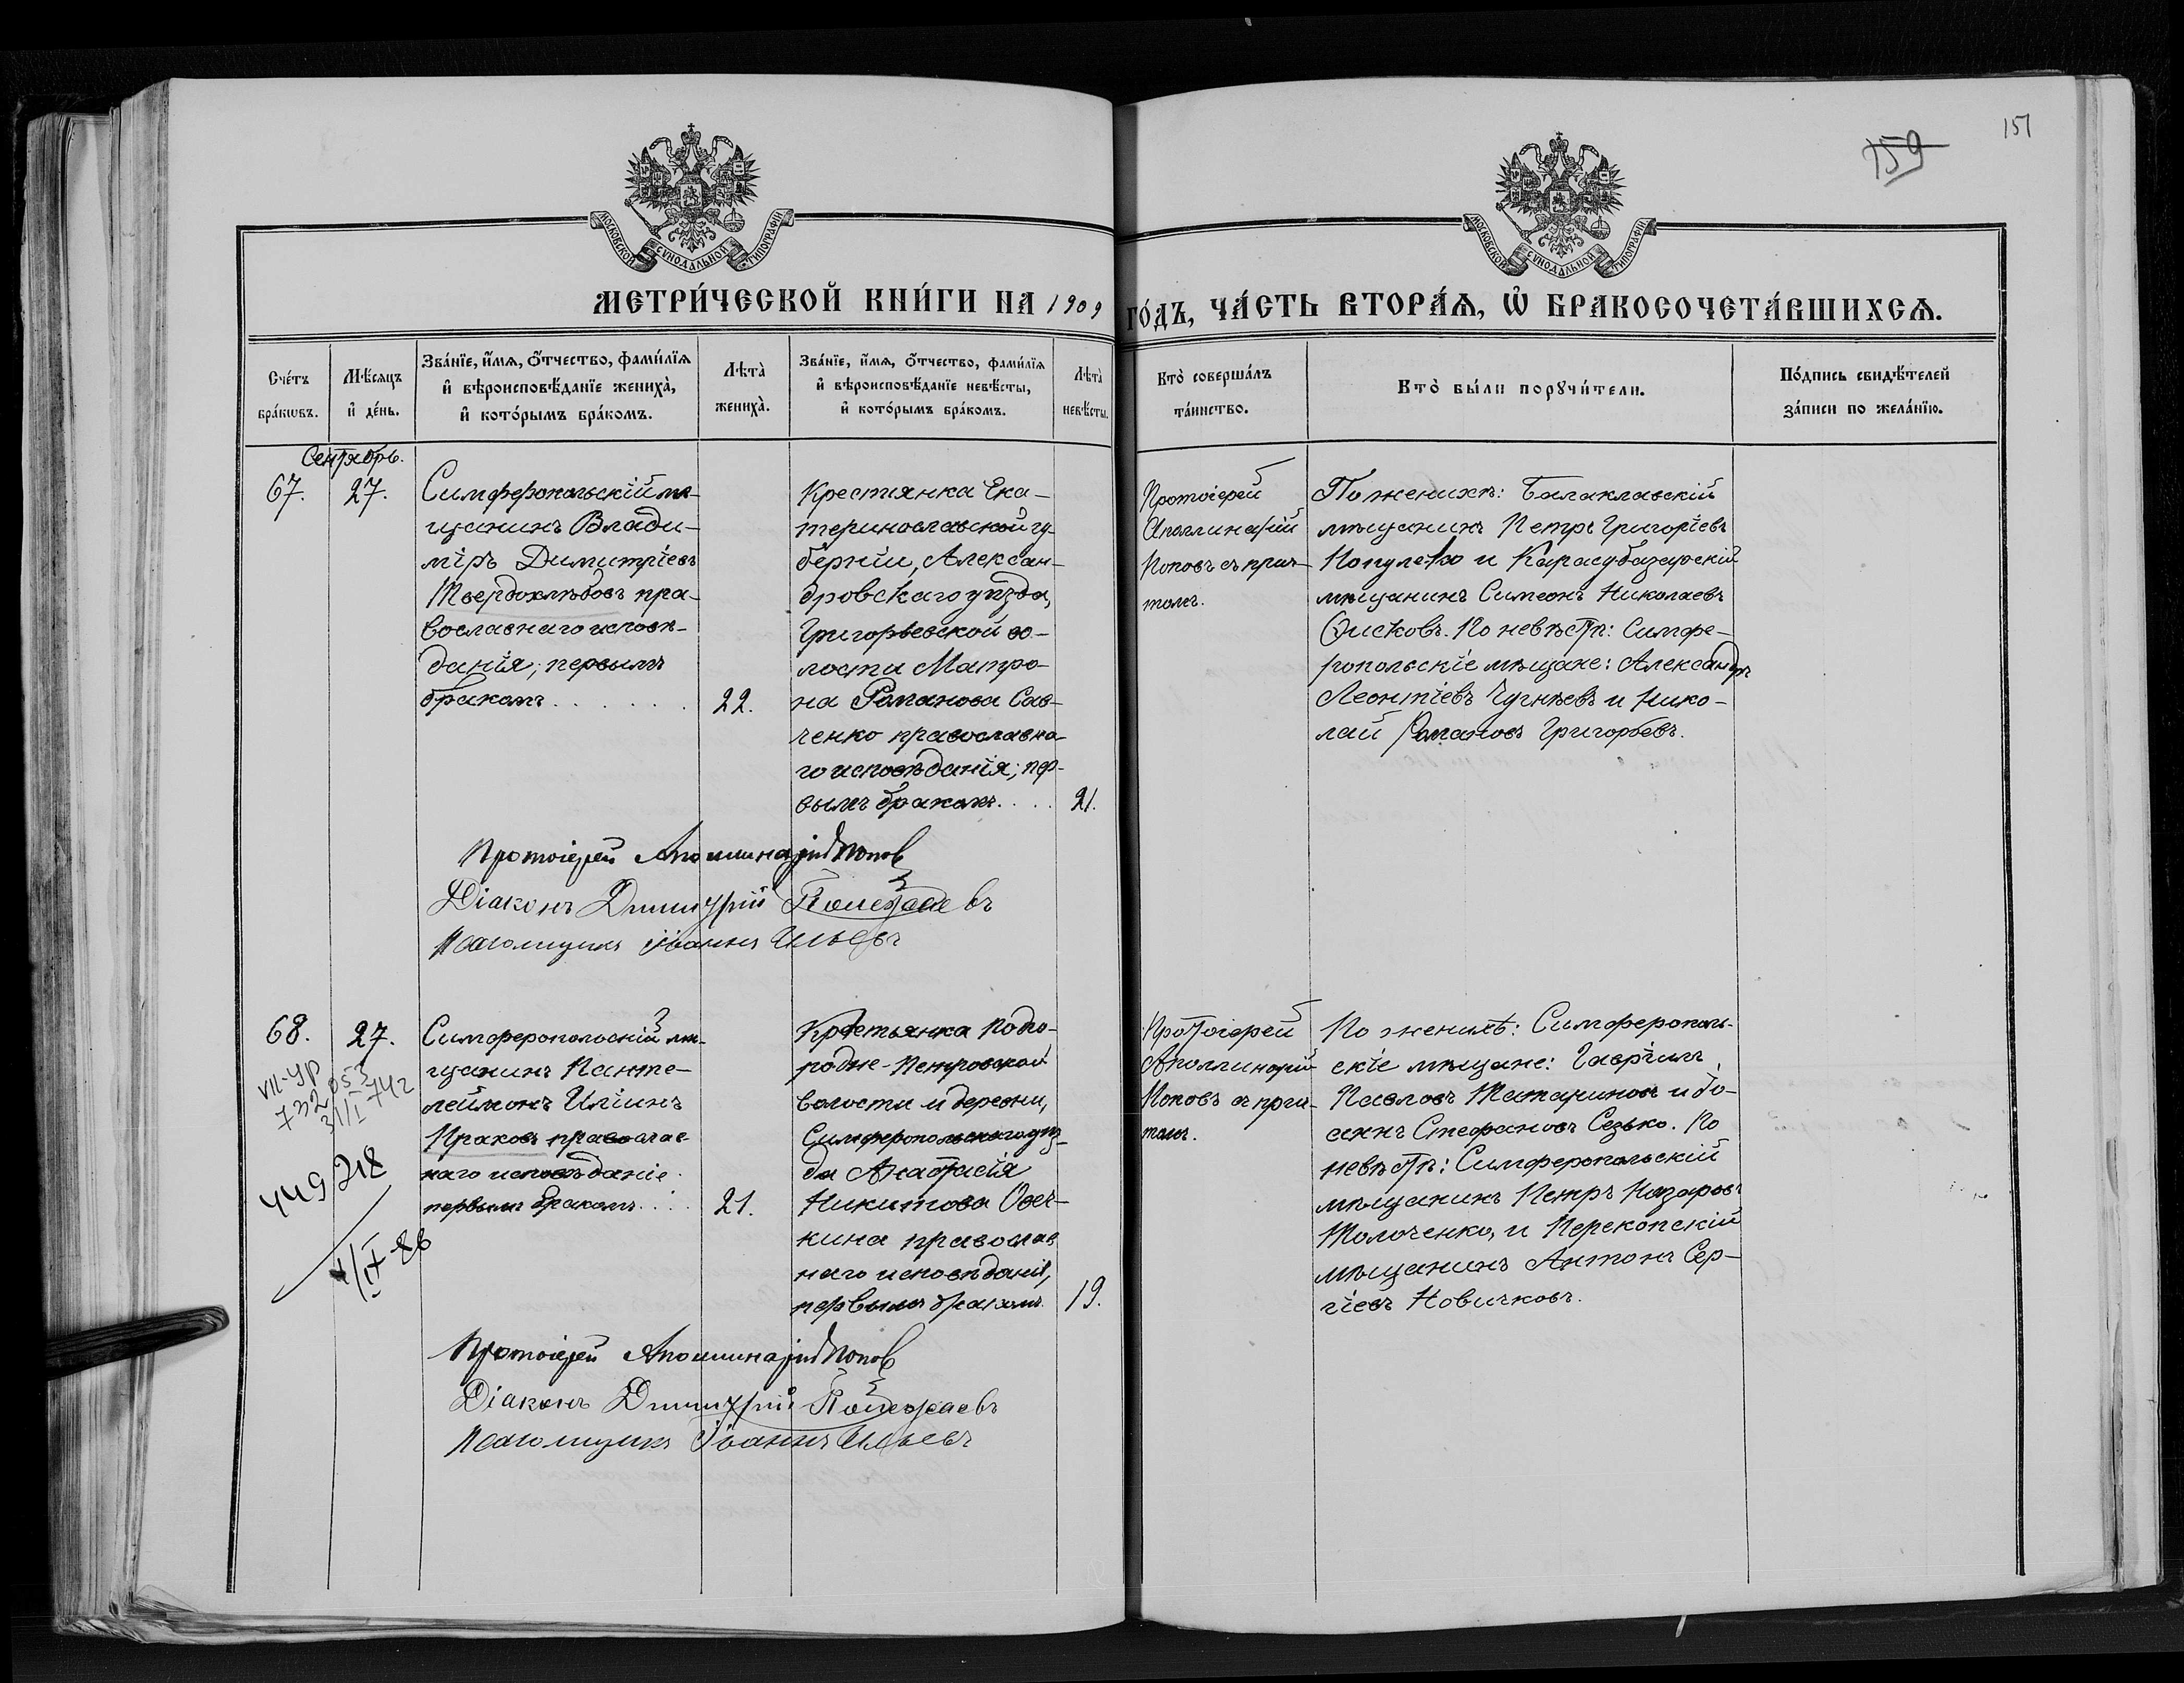 151
159
МОСКОВСКОЙ СѴНОДАЛЬНОЙ ТИПОГРАФІИ
МОСКОВСКОЙ СѴНОДАЛЬНОЙ ТИПОГРАФІИ
МЕТРИ́ЧЕСКОЙ КНИ́ГИ НА 1909 ГО́ДЪ, ЧА́СТЬ ВТОРА́Ѧ, Ѽ БРАКОСОЧЕТА́ВШИХСѦ.
Сче́тъ
бра́кѡвъ.
Мѣ́сѧцъ
и҆ де́нь.
Зва́нїе, и҆́мѧ, ѻ҆́тчество, фами́лїѧ
и҆ вѣроисповѣ́данїе жениха̀,
и҆ кото́рымъ бра́комъ.
Лѣта̀
жениха̀.
Зва́нїе, и҆́мѧ, ѻ҆́тчество, фами́лїѧ
и҆ вѣроисповѣ́данїе невѣ́сты,
и҆ кото́рымъ бра́комъ.
Лѣта̀
невѣ́сты.
Кто̀ соверша́лъ
та́инство.
Кто̀ бы́ли порꙋчи́тели.
По́дпись свидѣ́телей
за́писи по жела́нїю.
Сентябрь.
67.
27.
Симферопольскій мѣ-
щанинъ Влади-
міръ Димитріевъ
Твердохлѣбовъ пра-
вославнаго исповѣ-
данія; первымъ
бракомъ . . . . . .
22.
Крестьянка Ека-
теринославской гу-
берніи, Алексан-
дровскаго уѣзда,
Григорьевской во-
лости Матро-
на Романова Сав-
ченко православна-
го исповѣданія; пер-
вымъ бракомъ. . . .
21.
Протоіерей
Аполлинарій
Поповъ съ прич-
томъ.
По женихѣ: Балаклавскій
мѣщанинъ Петръ Григоріевъ
и Карасубазарскій
мѣщанинъ Симеонъ Николаевъ
По невѣстѣ: Симфе-
ропольскіе мѣщане: Александръ
Леонтіевъ и Нико-
лай Романовъ Григорьевъ.
Протоіерей Аполлинарій Поповъ
Діаконъ Димитрій
Псаломщикъ Іоаннъ Ильевъ
68.
27.
VII-УР
732053
31/I 74г
449218
1/IX-86
Симферопольскій мѣ-
щанинъ Панте-
леймонъ Иліинъ
Праховъ православ-
наго исповѣданіе
первымъ бракомъ. . . .
21.
Крестьянка Подго-
родне-Петровской
волости и деревни,
Симферопольскаго уѣз-
да Анастасія
Никитова Овеч-
кина православ
наго исповѣданія,
первымъ бракомъ.
19.
Протоіерей
Аполлинарій
Поповъ съ прич-
томъ.
По женихѣ: Симферополь-
скіе мѣщане: Гавріилъ
Павловъ Татариновъ и Іо-
аннъ Стефановъ Сезько. По
невѣстѣ: Симферопольскій
мѣщанинъ Петръ Назаровъ
Толоченко, и Перекопскій
мѣщанинъ Антонъ Сер-
гіевъ Новичковъ.
Протоіерей Аполлинарій Поповъ
Діаконъ Димитрій
Псаломщикъ Іоаннъ Ильевъ